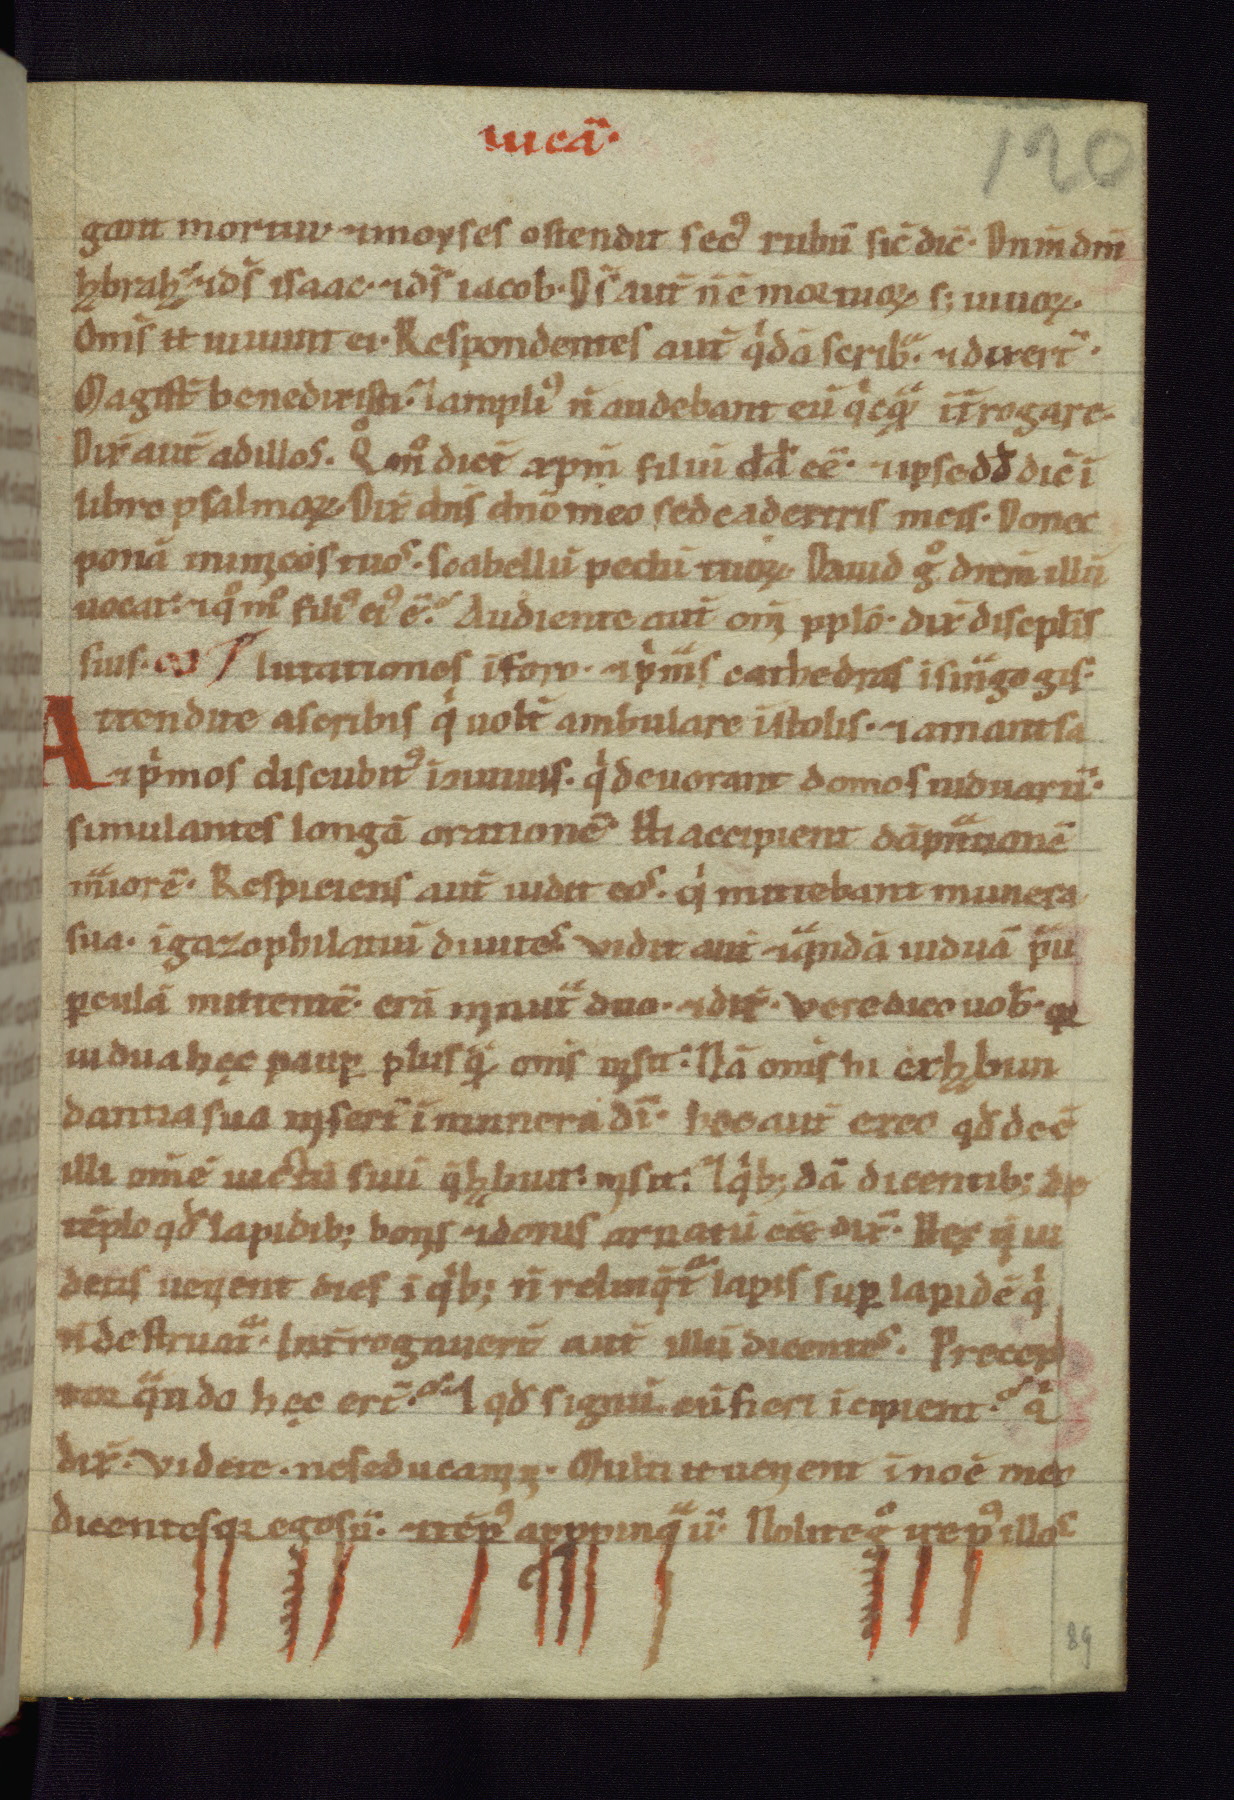 lucā·
120
gant mortui· ⁊ moyses ostendit sec᷒ rubū sic̄ dic̄· Dnm̄ dm̄
habrahā ⁊ ds̄ isaac· ⁊ ds̄ iacob· Ds̄ aut̄ n̄ ē mortuoꝝ s; uiuoꝝ·
Om̄s .n. uiuunt ei· Respondentes aut̄ q̇dā scribaꝝ· ⁊ dixert̄·
Magist̄ benedixisti· ⁊ ampli᷒ n̄ audebant eū q̇cq̄ īt̄rogare·
Dix̄ aut̄ ad illos· Qͦmͦ dict̄ xpm̄ filiū dd̄ eē· ⁊ ipse dd̄ dic̄ ī
libro psalmoꝝ· Dix̄ dn̄s dn̄o meo sede a dextris meis· Donec
ponā inimicos tuos· scabellū pedū tuoꝝ· Dauid gͦ dnm̄ illū
uocat· ⁊ qͦmͦ fili᷒ ei᷒ ē· Audiente aut̄ om̄i pplō· dix̄ discplīs
suis· lutationes ī foro· ⁊ ṗmas cathedras ī sinagogis·
Attendite a scribis q̇ uolt̄ ambulare ī stolis· ⁊ amant sa
⁊ ṗmos discubit᷒ ī uiuiis· q̇ deuorant domos uiduarū·
simulantes longā orationē· Hi accipient dāpnationē
maiorē· Respiciens aut̄ uidit eos· q̇ mittebant munera
sua· ī gazophilatiū diuites· vidit aut̄ ⁊ q̄ndā uiduā pau
ꝑculā mittentē· era minuta duo· ⁊ dix̄· vere dico uob̄· qꝛ
uidua hęc pauꝑ plus q̄ om̄s misit· Nā om̄s hi ex habun
dantia sua misert̄ ī munera dī· hec aut̄ ex eo qđ deē
illi om̄ē uictū suū q̄ habuit· misit· ⁊ q̇b; dā dicentib; de
tēplo qđ lapidib; bonis ⁊ donis ornatū eēt dix̄· Hęc q̄ ui
detis uenient dies ī q̇b; n̄ relinq̄t᷑ lapis suꝑ lapidē q̇
n̄ destruat᷑· Int̄rogauert̄ aut̄ illū dicentes· Precep
tor q̄ndo hęc ert̄· ⁊ qđ signū cū fieri īcipient· Q̇
dix̄· videte· ne seducamini· Multi .n. uenient ī noē meo
dicentes qꝛ ego sū· ⁊ tēp᷒ appinq̄uit· Nolite gͦ ire p᷒ illos
89